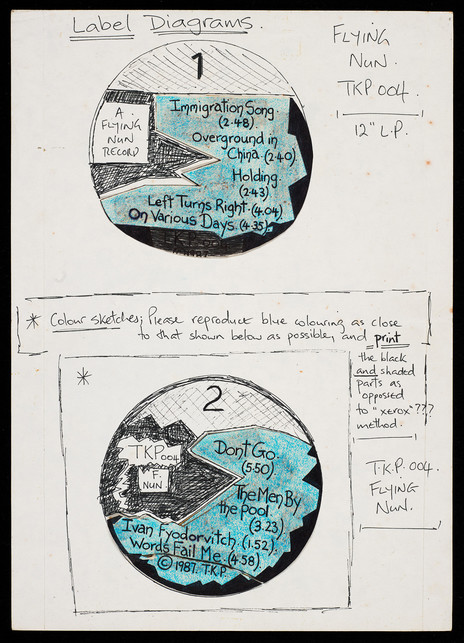 Label Diagrams.
FLYING
NUN.
TKP 004.
12" L.P.
1
A
FLYING
NUN
RECORD
Immigration Song.
(2.48).
Overground in
China. (2.40).
Holding
(2.43).
Left Turns Right. (4.04)
On Various Days. (4.35).
* Colour sketches; Please reproduce blue colouring as close
to that shown below as possible, and print
the black
and shaded
parts as
opposed
to "xerox"???
method.
*
2
TKP 004
F.
NUN.
Dont Go.
(5.50)
The Men By
the Pool.
(3.23)
Ivan Fyodorvitch. (1.52).
Words Fail Me. (4.58).
© 1987. T.K.P.
T.K.P. 004.
FLYING
NUN.